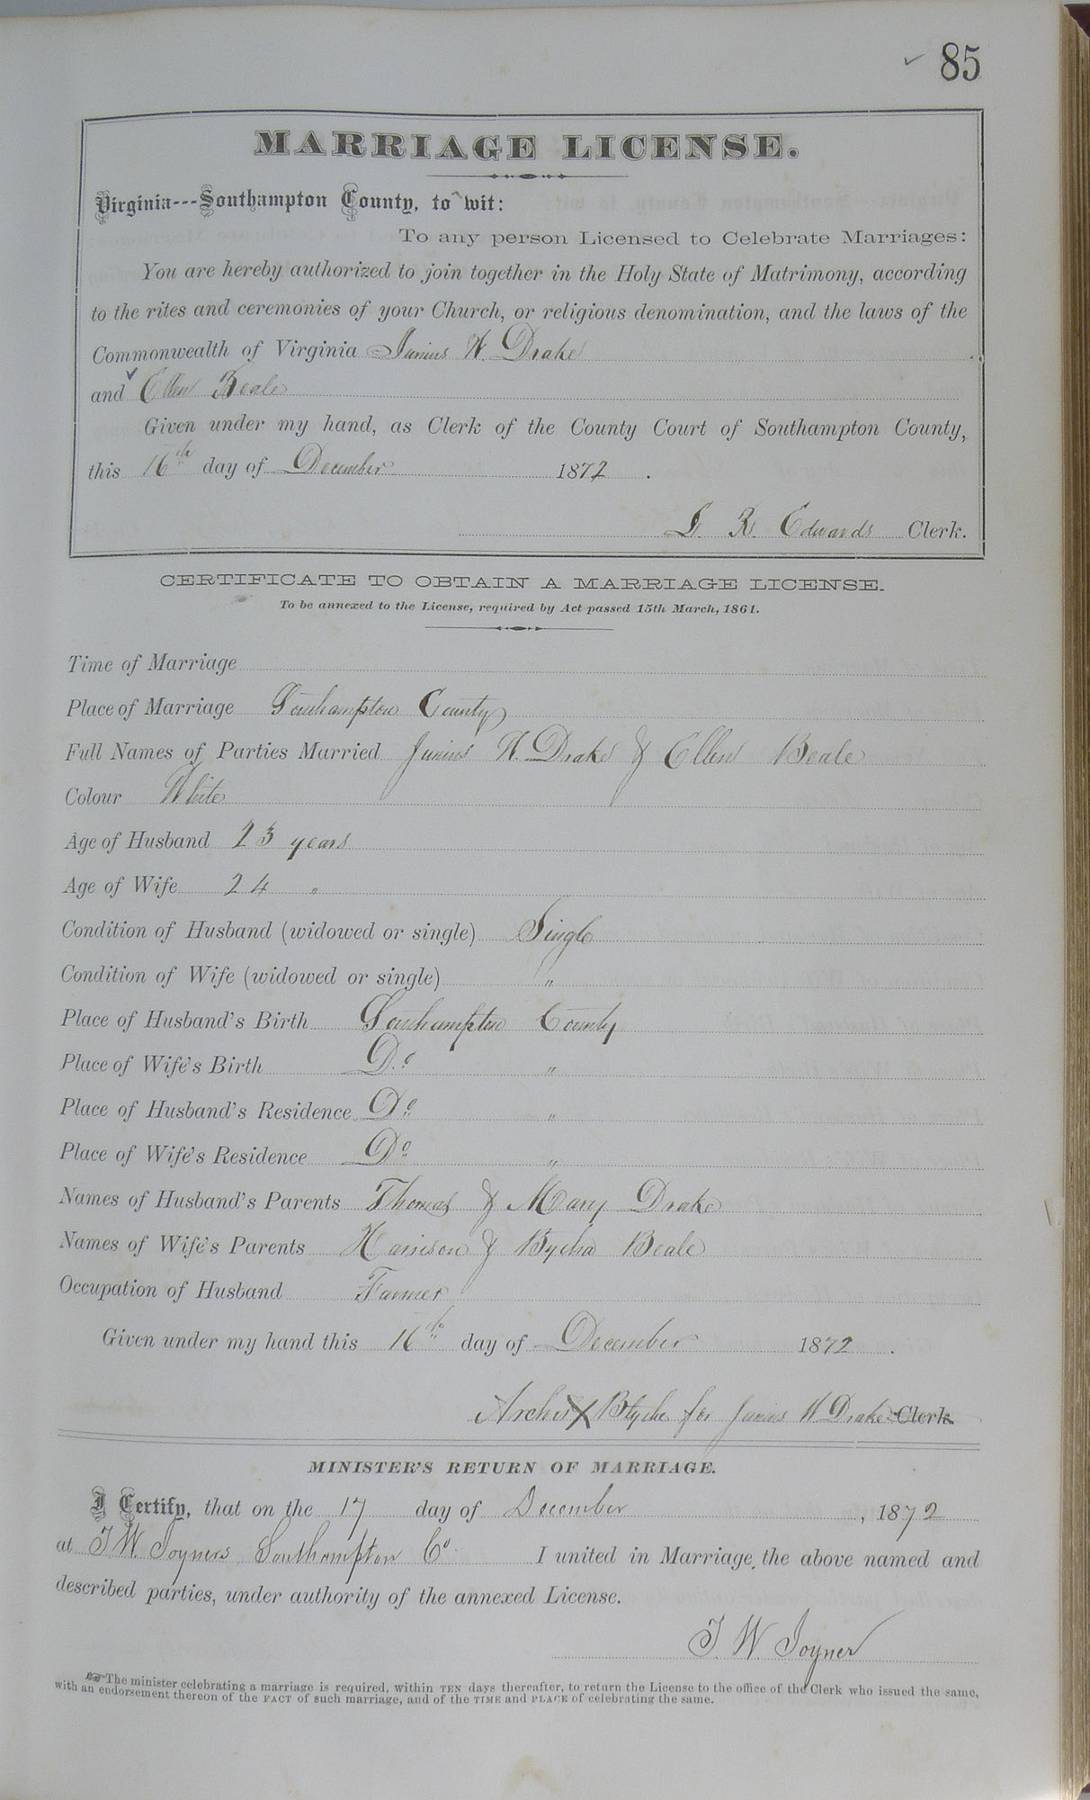 ✓ 85
MARRIAGE LICENSE.
Virginia---Southampton County, to wit:
To any person Licensed to Celebrate Marriages:
You are hereby authorized to join together in the Holy State of Matrimony, according
to the rites and ceremonies of your Church, or religious denomination, and the laws of the
Commonwealth of Virginia Junius W. Drake
and Ellen Beale
Given under my hand, as Clerk of the County Court of Southampton County,
this 16th day of December 1872.
L. R. Edwards Clerk.
CERTIFICATE TO OBTAIN A MARRIAGE LICENSE.
To be annexed to the License, required by Act passed 15th March, 1861.
Time of Marriage
Place of Marriage Southampton County
Full Names of Parties Married Junius W. Drake & Ellen Beale
Colour White
Age of Husband 23 years
Age of Wife 24 "
Condition of Husband (widowed or single) Single
Condition of Wife (widowed or single) "
Place of Husband's Birth Southampton County
Place of Wife's Birth Do "
Place of Husband's Residence Do "
Place of Wife's Residence Do "
Names of Husband's Parents Thomas & Mary Drake
Names of Wife's Parents Harrison & Beale
Occupation of Husband Farmer
Given under my hand this 16th day of December 1872.
X for Junius W Drake Clerk.
MINISTER'S RETURN OF MARRIAGE.
I Certify, that on the 17 day of December, 1872
at J. W. Joyners Southampton Co I united in Marriage, the above named and
described parties, under authority of the annexed License.
J. W. Joyner
The minister celebrating a marriage is required, within TEN days thereafter, to return the License to the office of the Clerk who issued the same,
with an endorsement thereon of the FACT of such marriage, and of the TIME and PLACE of celebrating the same.